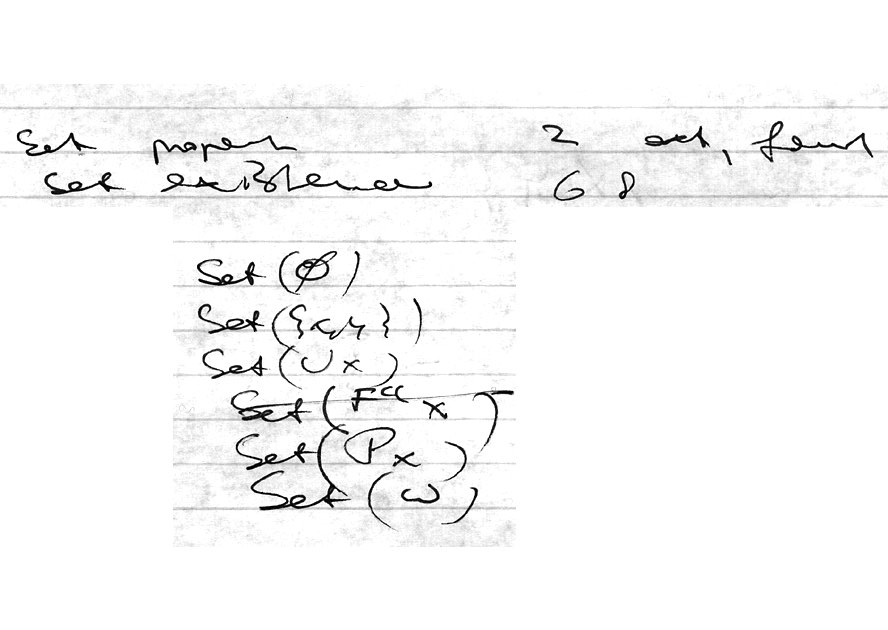 Set propert 2 ext, found
Set existence 6 8
Set (∅)
Set ({x,y})
Set (∪ x)
Set (F“ x)
Set (P x)
Set (ω)